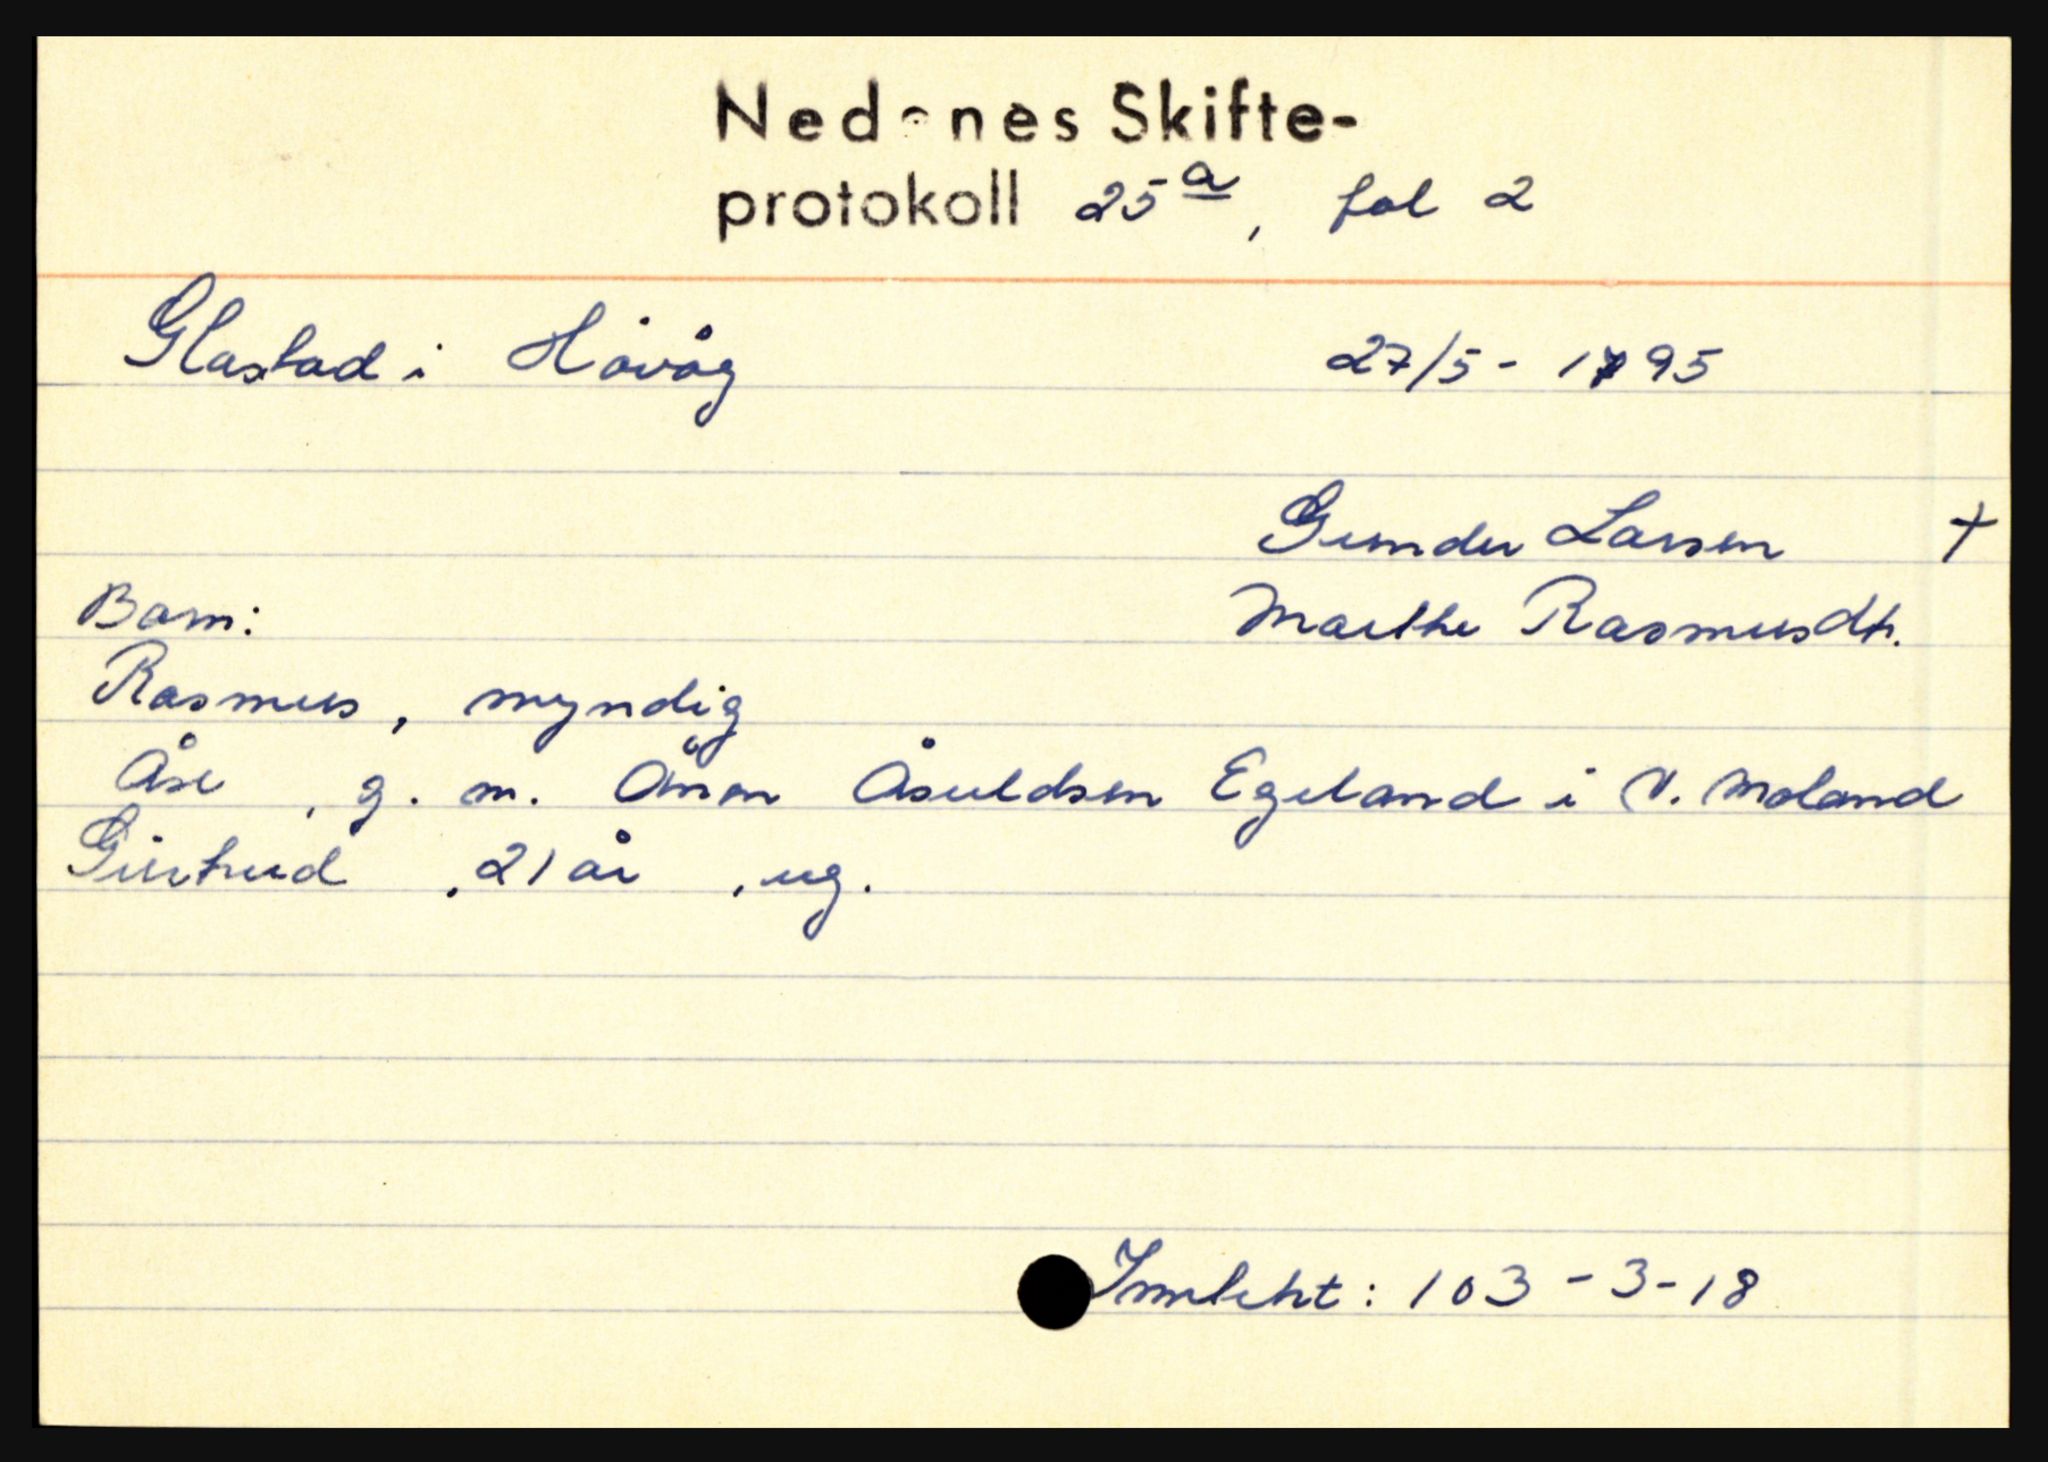 Nedenes Skifte-
protokoll 25a, fol 2
Glastad i Høvåg 27/5 - 1795
Gunder Larsen +
Barn: Marthe Rasmusdt.
Rasmus, myndig
Åse, g. m. Ånen Åsuldsen Egeland i V. Moland
Giertrud, 21 år, ug.
: 103 - 3 - 18